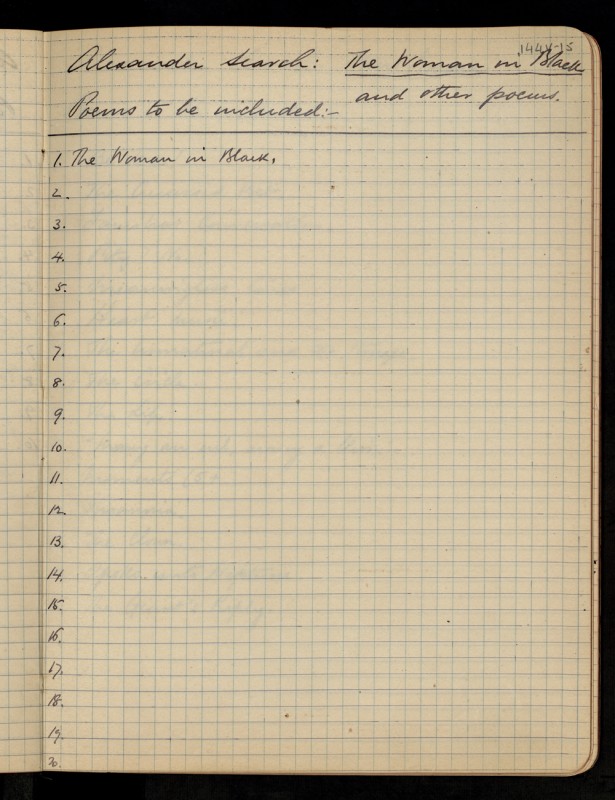 144V-15
Alexander Search: The Woman in Black
and other poems.
Poems to be included:-
1. The Woman in Black.
2.
3.
4.
5.
6.
7.
8.
9.
10.
11.
12.
13.
14.
15.
16.
17.
18.
19.
20.